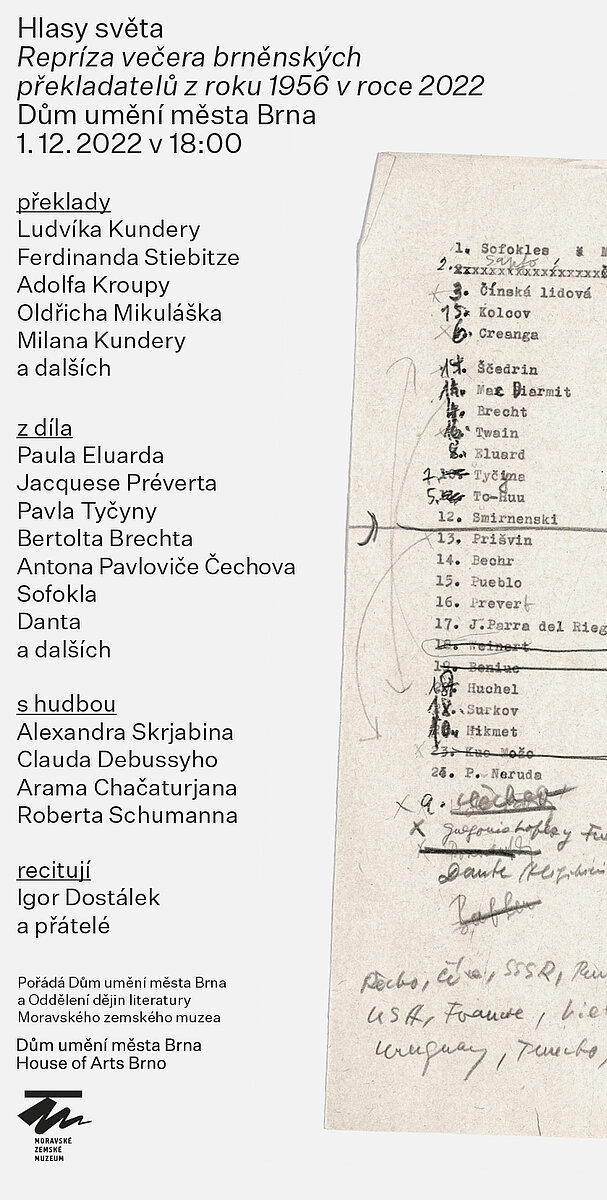 Hlasy světa
Repríza večera brněnských
překladatelů z roku 1956 v roce 2022
Dům umění města Brna
1. 12. 2022 v 18:00
překlady
Ludvíka Kundery
Ferdinanda Stiebitze
Adolfa Kroupy
Oldřicha Mikuláška
Milana Kundery
a dalších
z díla
Paula Eluarda
Jacquese Préverta
Pavla Tyčyny
Bertolta Brechta
Antona Pavloviče Čechova
Sofokla
Danta
a dalších
s hudbou
Alexandra Skrjabina
Clauda Debussyho
Arama Chačaturjana
Roberta Schumanna
recitují
Igor Dostálek
a přátelé
Pořádá Dům umění města Brna
a Oddělení dějin literatury
Moravského zemského muzea
Dům umění města Brna
House of Arts Brno
MORAVSKÉ
ZEMSKÉ
MUZEUM
1. Sofokles
2.
3. Čínská lidová
15. Kolcov
6. Creanga
Ščedrin
Mac Diarmit
Brecht
Twain
8. Eluard
7. Tyčyna
5. To-Huu
12. Smirnenski
13. Prišvin
14. Bechr
15. Pueblo
16. Prevert
17. J.Parra del Rieg
18. Weinert
19. Beniuc
Huchel
18. Surkov
10. Hikmet
23. Kuo Možo
P. Neruda
9.
Dante
SSSR,
USA, France,
Uruguay,